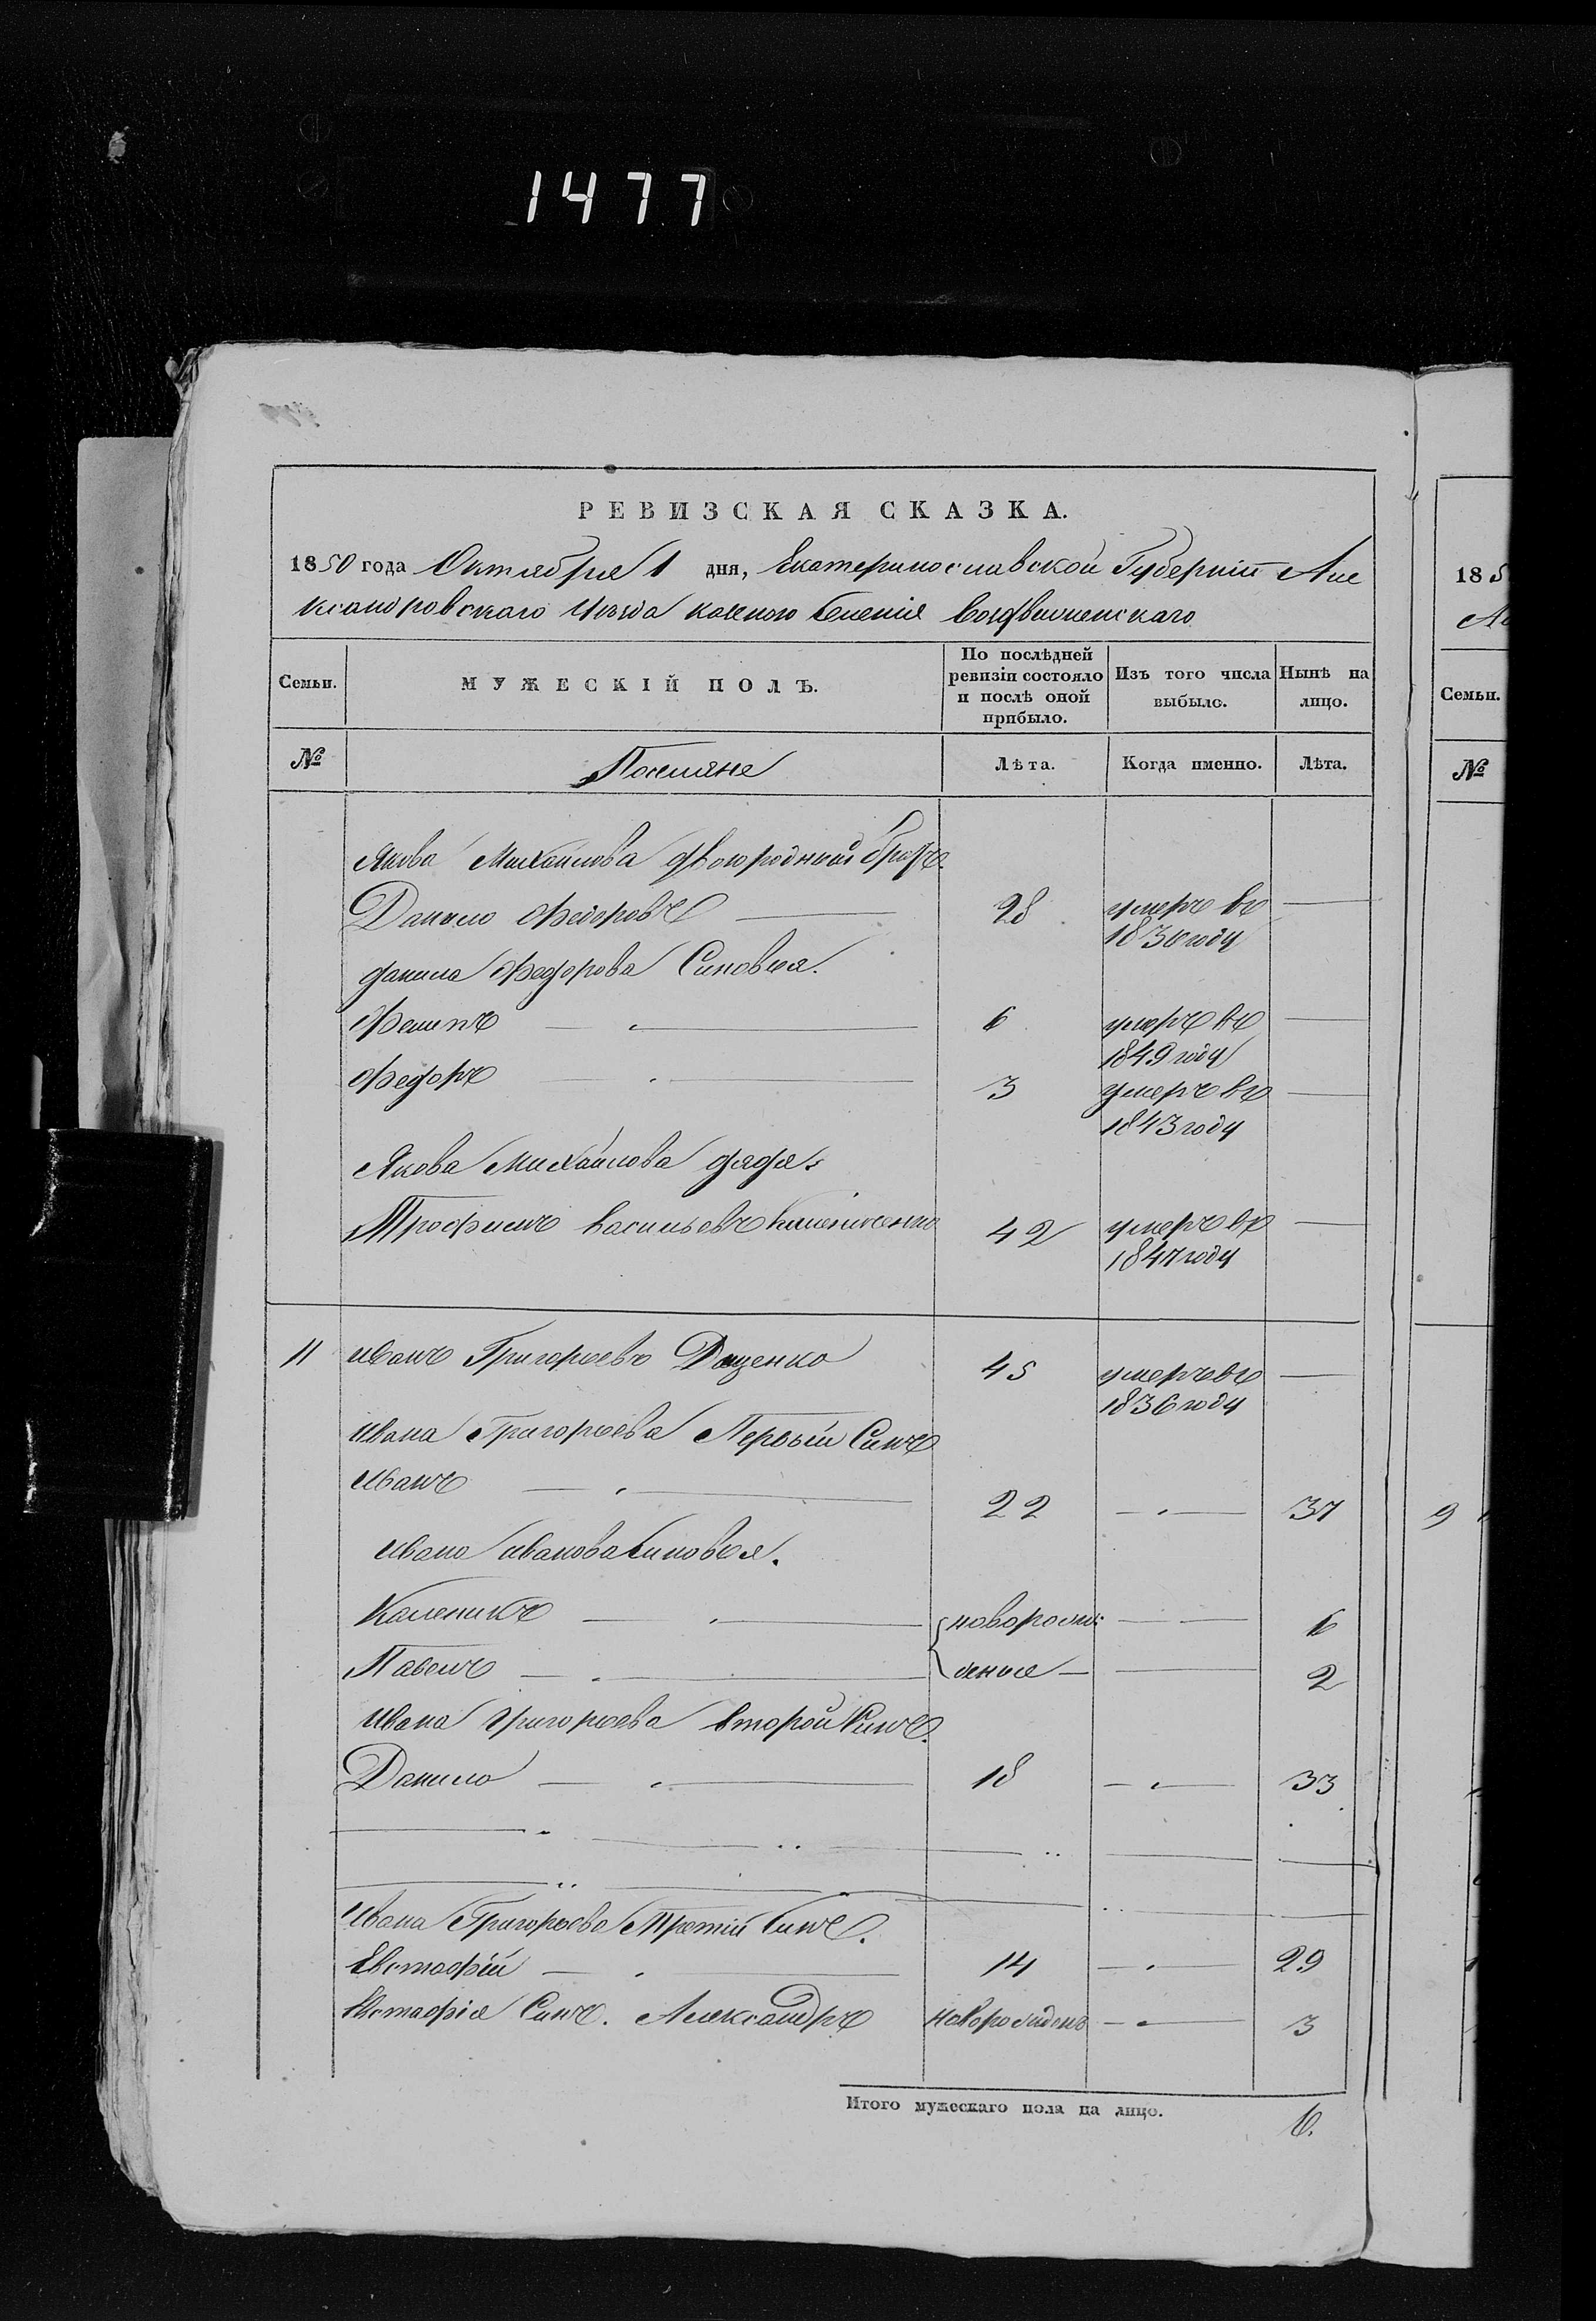 1477
РЕВИЗСКАЯ СКАЗКА.
1850 года Октября 1 дня, Екатеринославской Губерніи Але
ксандровскаго Уѣзда казеного Селенія Воздвиженскаго
Семьи.
МУЖЕСКІЙ ПОЛЪ.
По послѣдней ревизіи состояло и послѣ оной прибыло.
Изъ того числа выбыло.
Нынѣ на лицо.
№
Поселяне
Лѣта.
Когда именно.
Лѣта.
Якова Михайлова двоюродный братъ
Данило Федоровъ — 28 умеръ въ —
1836 году
Данила Федорова Синовья.
Филипъ — 6 умеръ въ —
1849 году
Федоръ — 3 умеръ въ —
1843 году
Якова Михайлова дядя
Трофимъ Васильевъ 42 умеръ въ —
1847 году
11 Иванъ Григорьевъ Даценко 45 умеръ въ —
1836 году
Ивана Григорьева Первый Синъ
Иванъ — 22 — 37
Ивана Иванова Синовья.
Каленикъ — новорож — 6
Павелъ — деные — 2
Ивана Григорьева второй Синъ.
Данило — 18 — 33
Ивана Григорьева Третій Синъ.
Евстафій — 14 — 29
Евстафія Синъ. Александръ новорожденъ — 3
Итого мужескаго пола на лицо. 6.
185
№
Семьи.
9